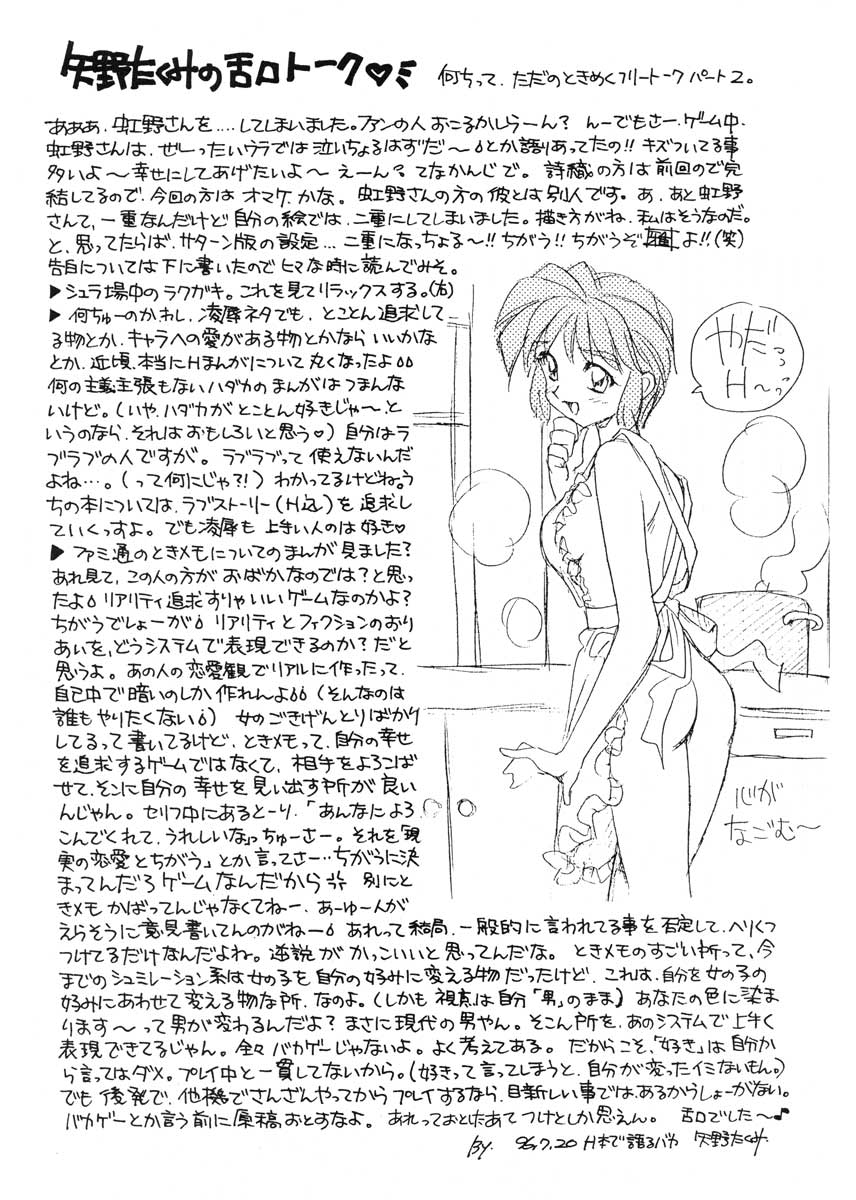 矢野たくみの舌口トーク♡ミ
何ちって、ただのときめくフリートークパート2。
あああ、虹野さんを‥‥してしまいました。ファンの人おこるかしらーん? んーでもさー、ゲーム中、
虹野さんは、ぜーったいウラでは泣いちょるはずだ〜とか語りあってたの!! キズついてる事
多いよ〜幸せにしてあげたいよ〜 えーん? てなかんじで。詩織の方は前回ので完
結してるので、今回の方はオマケかな。虹野さんの方の彼とは別人です。あ、あと虹野
さんて、一重なんだけど自分の絵では、二重にしてしまいました。描き方がね、私はそうなのだ。
と、思ってたらば、サターン版の設定…二重になっちょる〜!! ちがう!! ちがうぞ よ!!(笑)
告白については下に書いたのでヒマな時に読んでみそ。
▶シュラ場中のラクガキ。これを見てリラックスする。(右)
▶何ちゅーのかわし、凌辱ネタでも、とことん追求して
る物とか、キャラへの愛がある物とかなら いいかな
とか、近頃、本当にHまんがについて丸くなったよ
何の主義主張もないハダカのまんがはつまんな
いけど。(いや、ハダカがとことん好きじゃ〜と
いうのなら、それはおもしろいと思う♡)自分はラ
ブラブの人ですが。ラブラブって使えないんだ
よね…。(って何にじゃ?!)わかってるけどね。う
ちの本については、ラブストーリー(H込)を追求し
ていくっすよ。でも凌辱も上手い人のは好き♡
▶ファミ通のときメモについてのまんが見ました?
あれ見て、この人の方がおばかなのでは?と思っ
たよ リアリティ追求すりゃいいゲームなのかよ?
ちがうでしょーが リアリティとフィクションのおり
あいを、どうシステムで表現できるのか?だと
思うよ。あの人の恋愛観でリアルに作ったって、
自己中で暗いのしか作れんよ(そんなのは
誰もやりたくない)女のごきげんとりばかり
してるって書いてるけど、ときメモって、自分の幸せ
を追求するゲームではなくて、相手をよろこば
せて、そこに自分の幸せを見い出す所が良い
んじゃん。セリフ中にあるとーり、「あんなによろ
こんでくれて、うれしいな」っちゅーさー。それを「現
実の恋愛とちがう」とか言ってさー‥ちがうに決
まってんだろゲームなんだから 別にと
きメモかばってんじゃなくてねー、あーゆー人が
えらそうに意見書いてんのがねー あれって結局、一般的に言われてる事を否定して、へりくつ
つけてるだけなんだよね。逆説がかっこいいと思ってんだな。ときメモのすごい所って、今
までのシュミレーション系は女の子を自分の好みに変える物だったけど、これは、自分を女の子の
好みにあわせて変える物な所、なのよ。(しかも視点は自分「男」のまま)あなたの色に染ま
ります〜って男が変わるんだよ? まさに現代の男やん。そこん所を、あのシステムで上手く
表現できてるじゃん。全々バカゲーじゃないよ。よく考えてある。だからこそ、「好き」は自分か
ら言ってはダメ。プレイ中と一貫してないから。(好きって言ってしまうと、自分が変ったイミないもん。)
でも後発で、他機でさんざんやってからプレイするなら、目新しい事ではあるからしょーがない。
バカゲーとか言う前に原稿おとすなよ。あれっておとしたあてつけとしか思えん。舌口でした〜♪
By. 96.7.20 H本で語るバカ 矢野たくみ
やだっっ
H〜っっ
心が
なごむ〜